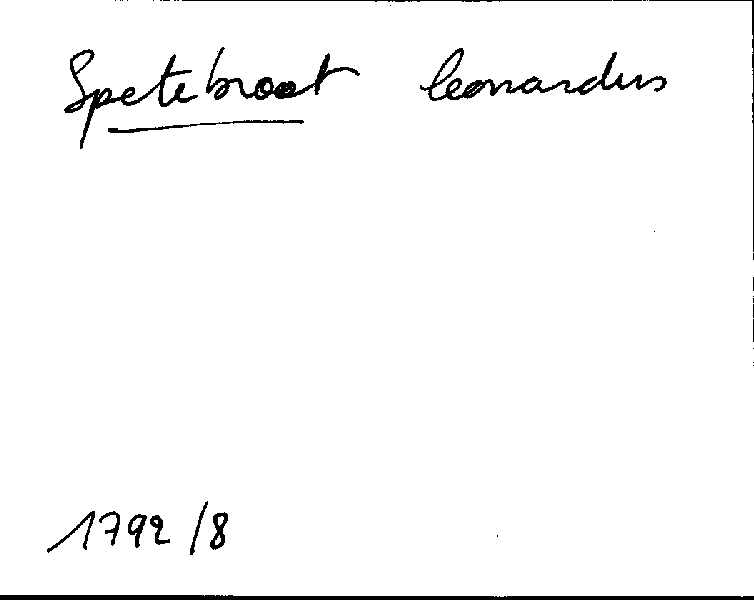 Spetebroot leonardus
1792/8